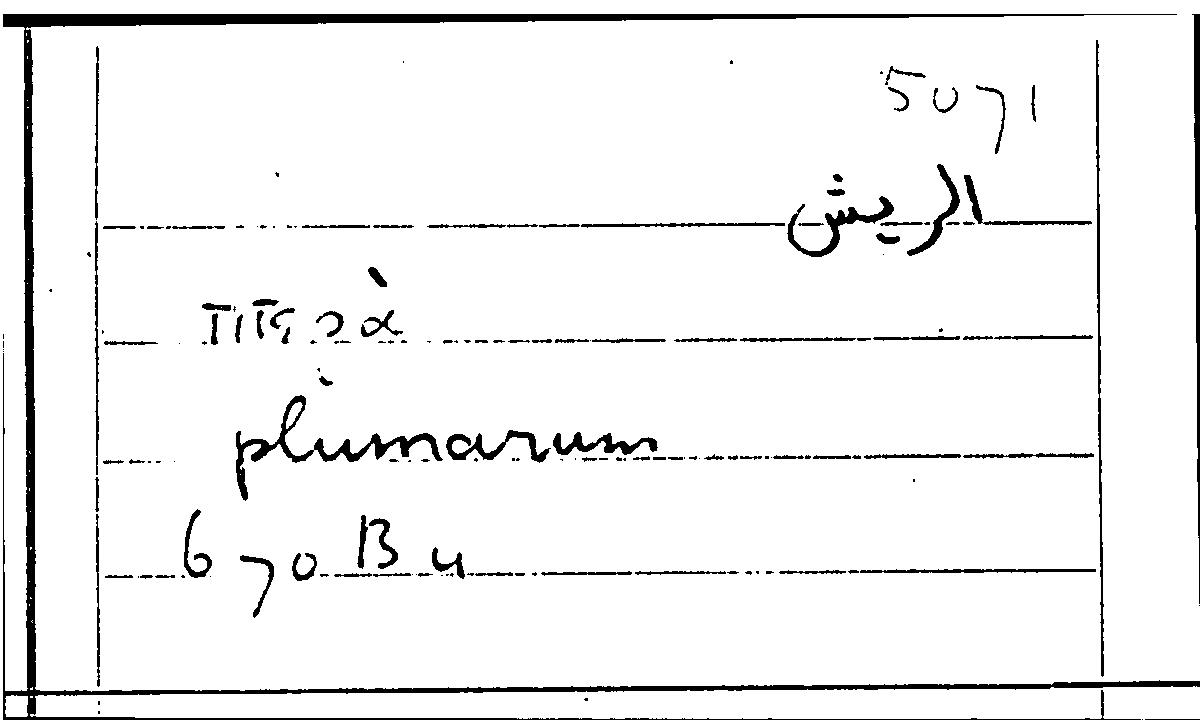 5071
الريش
plumarum
670 B 4